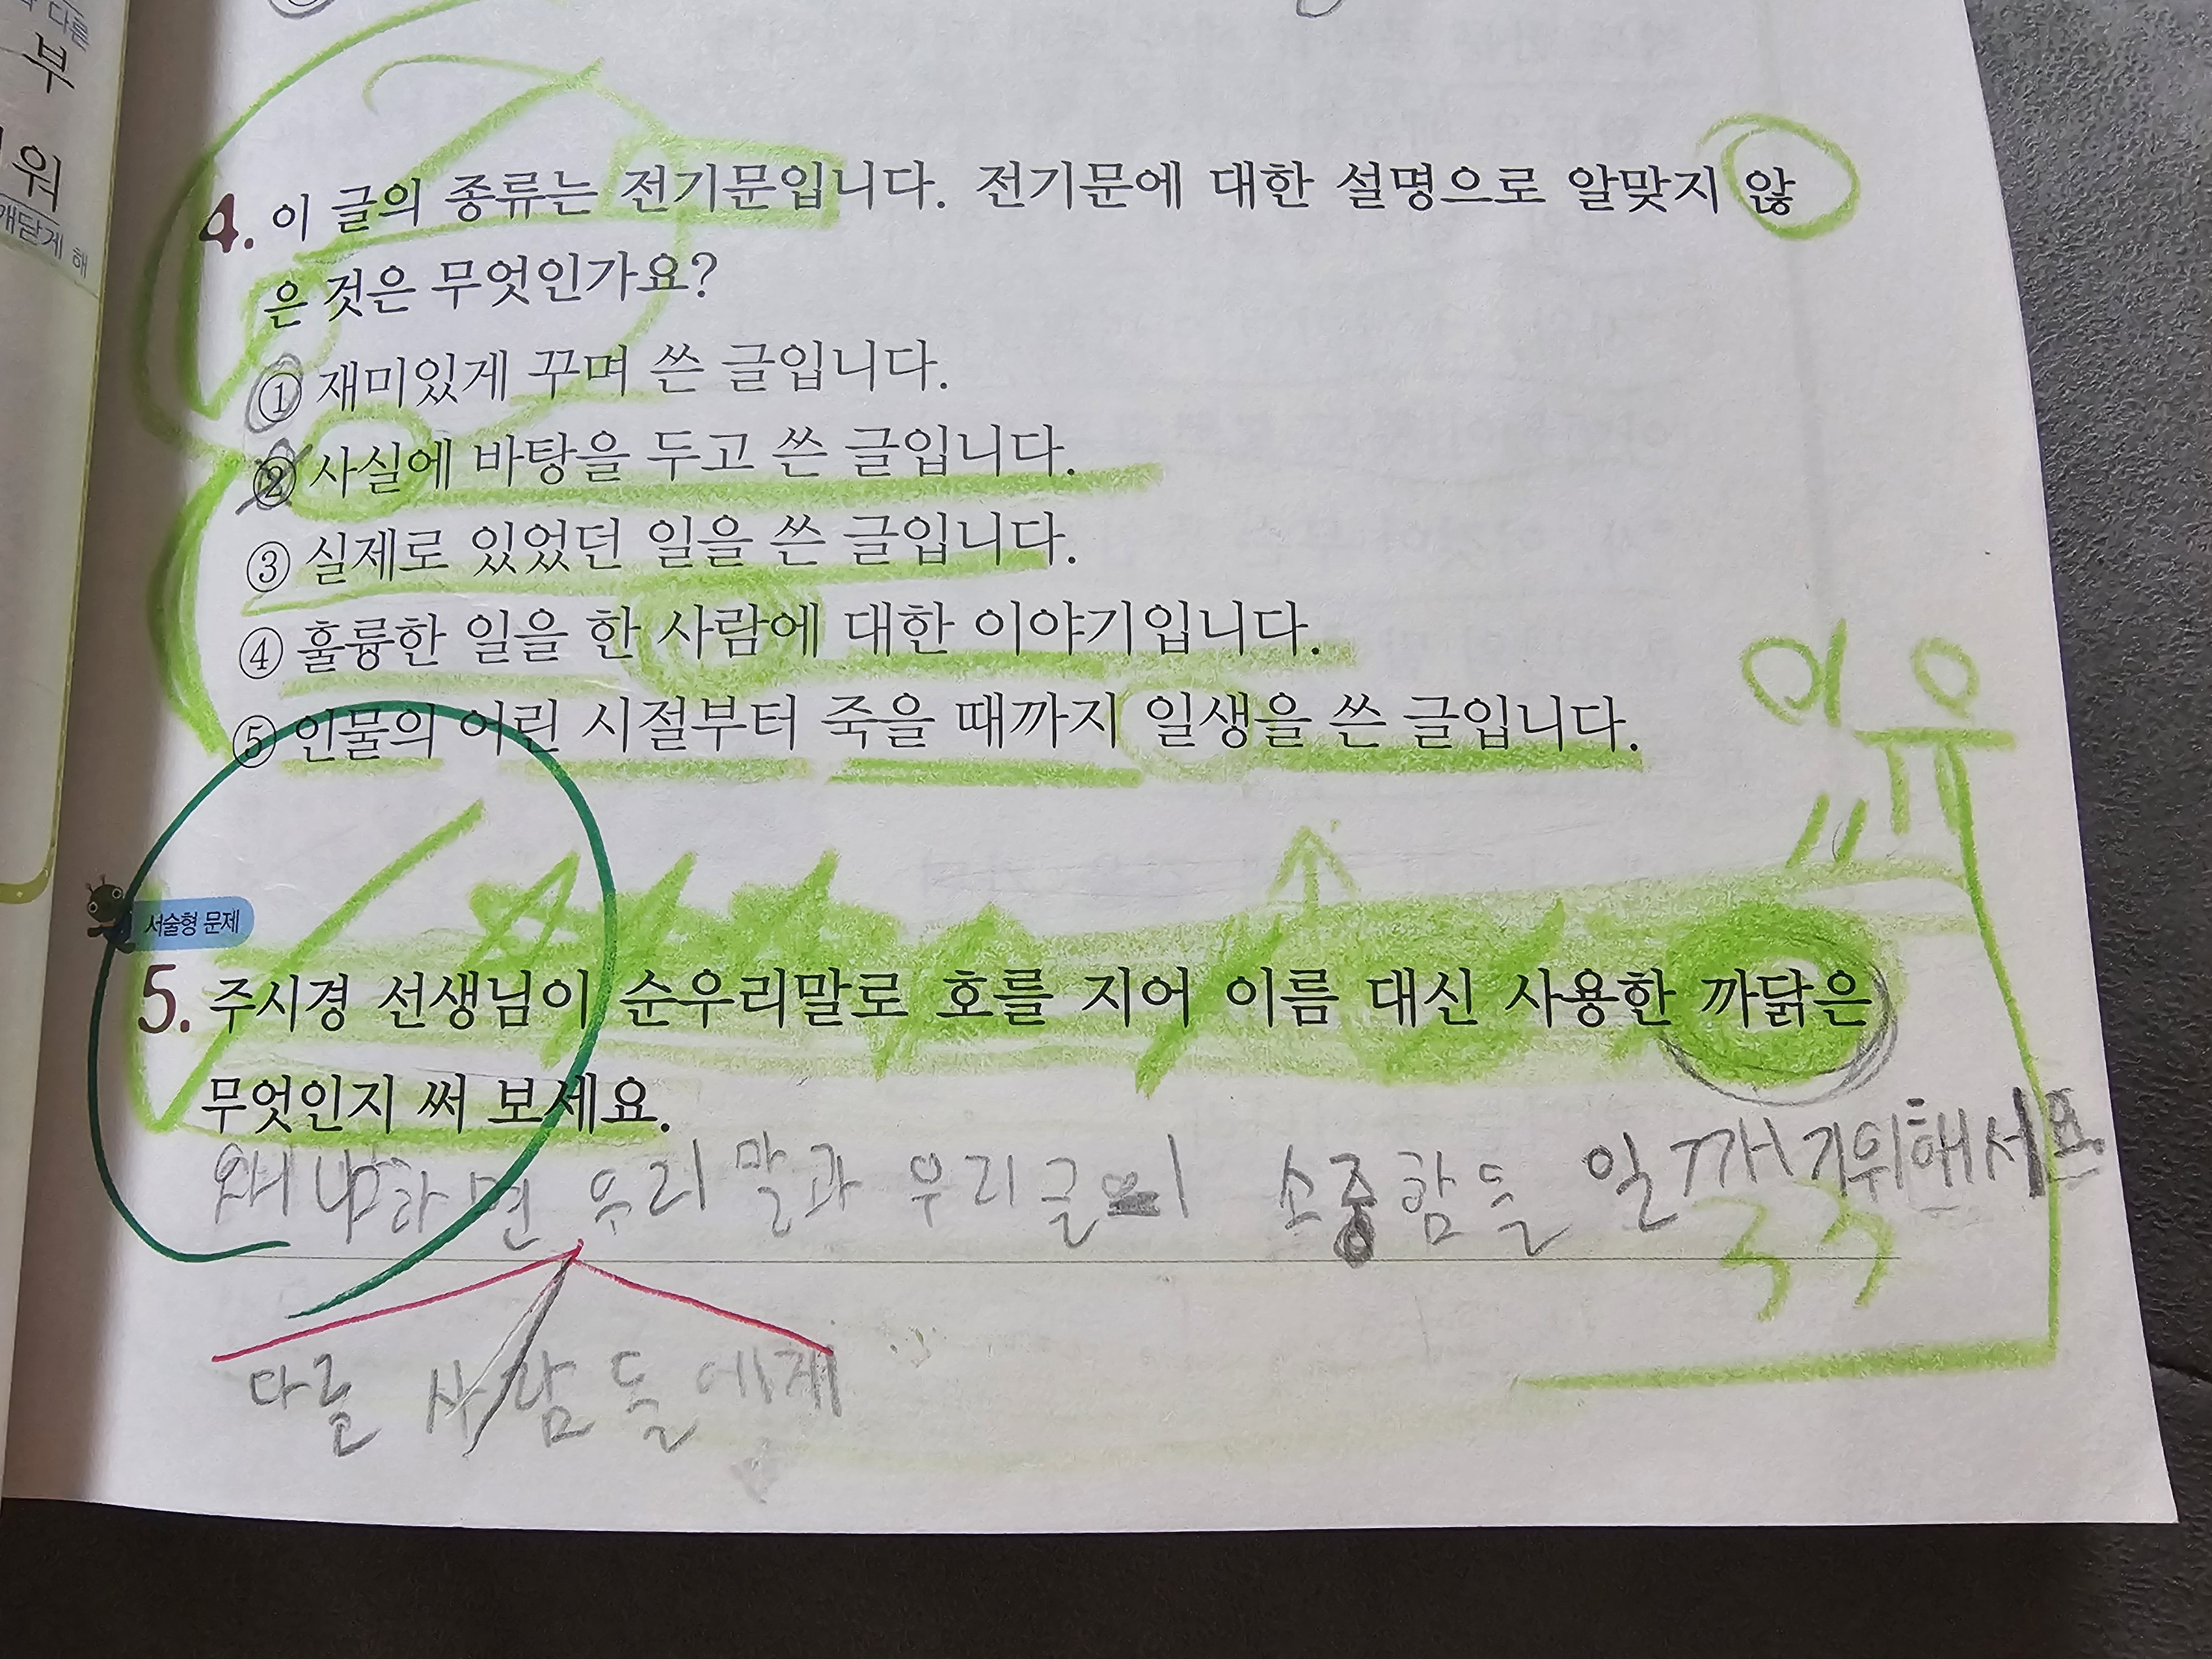 다른
부
워
깨닫게 해
4. 이 글의 종류는 전기문입니다. 전기문에 대한 설명으로 알맞지 않
은 것은 무엇인가요?
① 재미있게 꾸며 쓴 글입니다.
② 사실에 바탕을 두고 쓴 글입니다.
③ 실제로 있었던 일을 쓴 글입니다.
④ 훌륭한 일을 한 사람에 대한 이야기입니다.
⑤ 인물의 어린 시절부터 죽을 때까지 일생을 쓴 글입니다.
이유
서술형 문제
5. 주시경 선생님이 순우리말로 호를 지어 이름 대신 사용한 까닭은
무엇인지 써 보세요.
왜냐하면 우리말과 우리글이 소중함을 일깨기위해서
다른 사람들에게